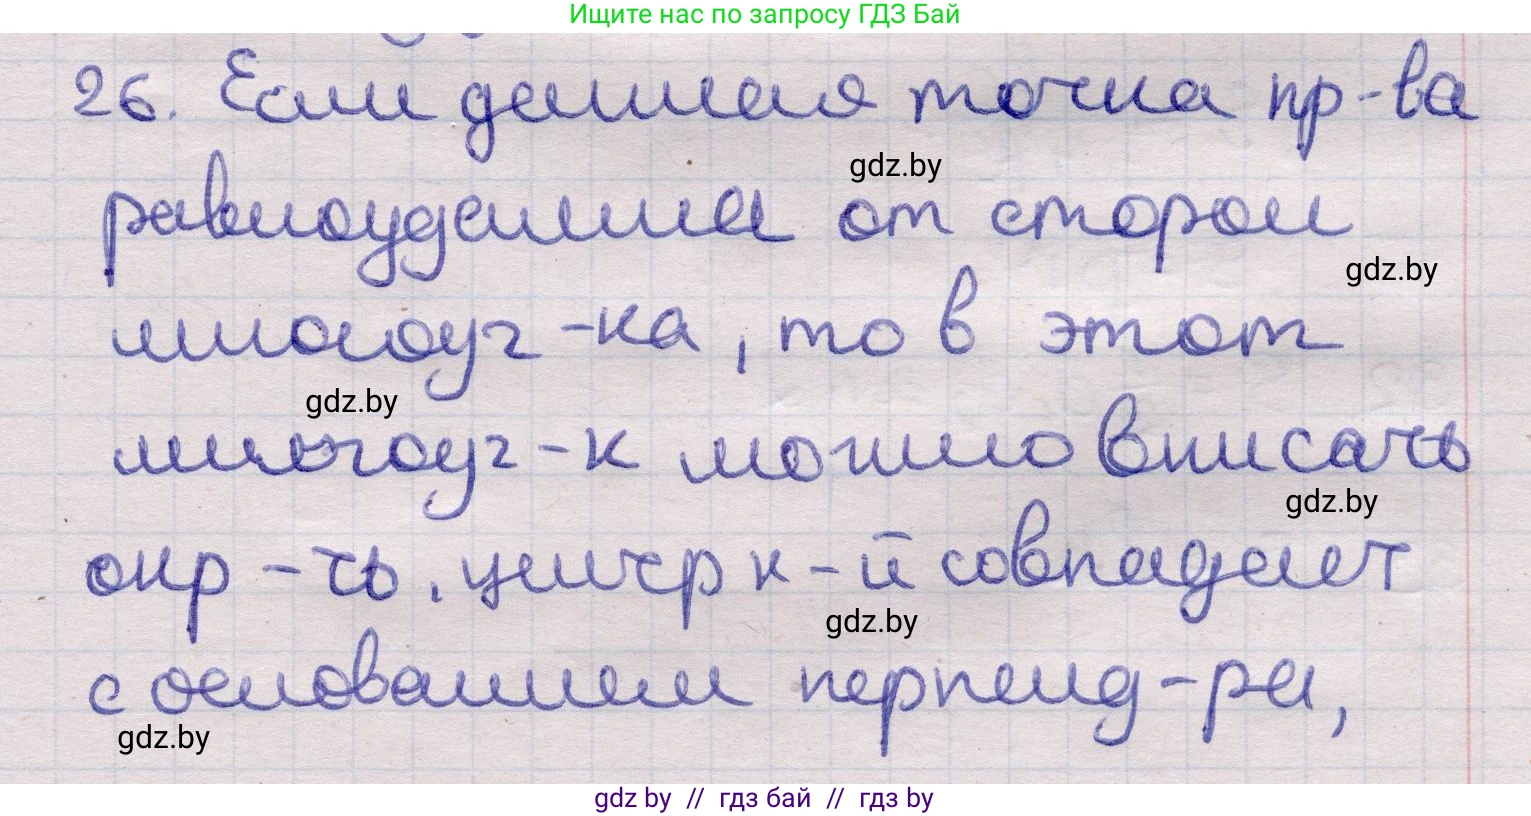 Ищите нас по запросу ГДЗ Бай
26. Если данная точка пр-ва
gdz.by
равноудалена от сторон
gdz.by
многоуг-ка, то в этот
gdz.by
многоуг-к можно вписать
gdz.by
окр-ть, центр к-й совпадает
gdz.by
с основанием перпенд-ра,
gdz.by
gdz by // гдз бай // гдз by